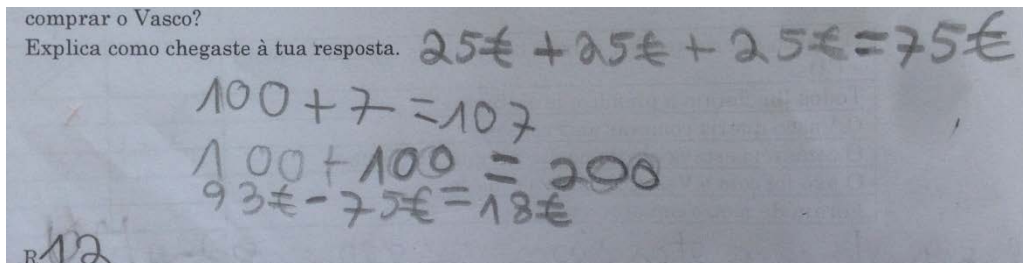 comprar o Vasco?
Explica como chegaste à tua resposta. 25€ + 25€ + 25€ = 75€
100 + 7 = 107
100 + 100 = 200
93€ - 75€ = 18€
R 12